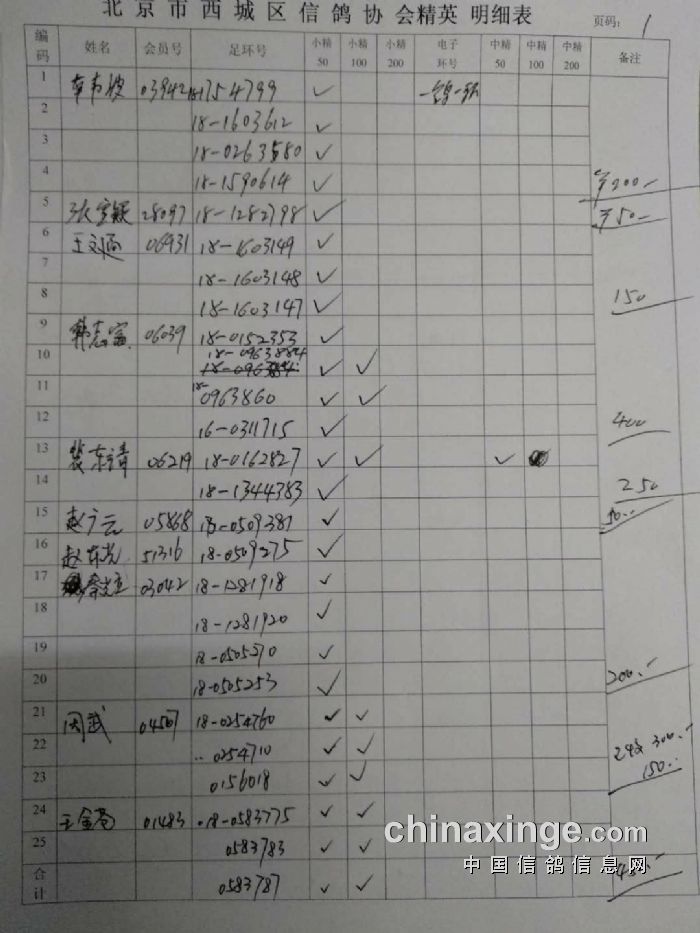 北京市西城区信鸽协会精英 明细表
页码: 1
编码 姓名 会员号 足环号 小精50 小精100 小精200 电子环号 中精50 中精100 中精200 备注
1 03942 18-1754799 ✓
2 18-1603612 ✓
3 18-0263580 ✓
4 18-1590614 ✓ ¥200.-
5 28097 18-1282798 ✓ ¥50-
6 06931 18-1603149 ✓
7 18-1603148 ✓
8 18-1603147 ✓ 150
9 韩志富 06039 18-0152353 ✓
10 18-0963884 ✓ ✓
11 18-0963860 ✓ ✓
12 16-0311715 ✓ 400
13 裴东靖 06219 18-0162827 ✓ ✓ ✓
14 18-1344383 ✓ 250
15 赵广云 05868 18-0509381 ✓ 50.-
16 赵东光 51316 18-0509275 ✓
17 03042 18-1281918 ✓
18 18-1281920 ✓
19 18-0505270 ✓
20 18-0505253 ✓ 200.-
21 闵武 04507 18-0254760 ✓ ✓
22 0254710 ✓ ✓ 300.-
23 0156018 ✓ ✓ 150.-
24 01483 18-0583775 ✓ ✓
25 0583783 ✓ ✓
合计 0583787 ✓ ✓ 450.-
chinaxinge.com
中国信鸽信息网